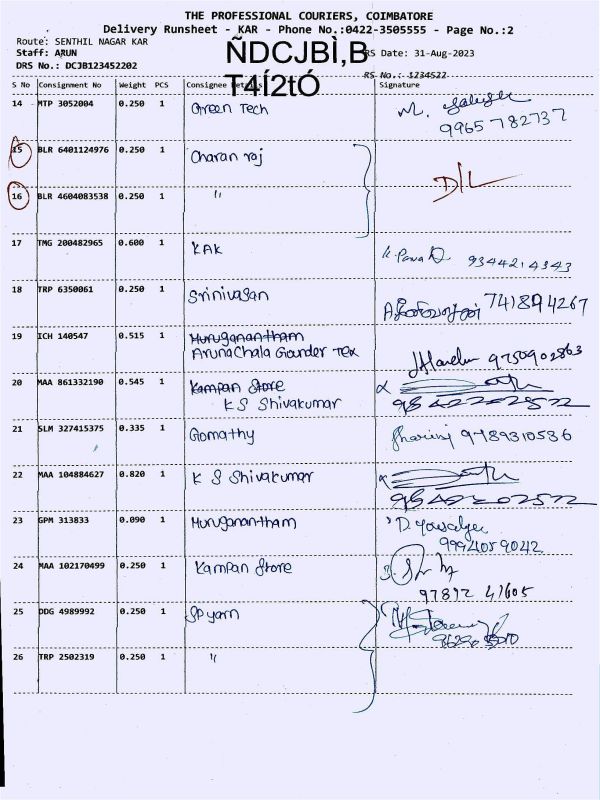 THE PROFESSIONAL COURIERS, COIMBATORE
Delivery Runsheet - KAR - Phone No:0422-3505555 - Page No.:2
Route: SENTHIL NAGAR KAR
Staff: ARUN
RS Date: 31-Aug-2023
DRS No.: DCJB123452202
ÑDCJBÌ,B
T4Í2tÓ
RS No.: 1234522
S No Consignment No Weight PCS Consignee Details Signature
14 MTP 3052004 0.250 1 Green Tech
9965782737
15 BLR 6401124976 0.250 1 Charan raj
D/L
16 BLR 4604083538 0.250 1 "
17 TMG 200482965 0.600 1 KAK 9344214343
18 TRP 6350061 0.250 1 Srinivasan 741894267
19 ICH 140547 0.515 1 Muruganantham
ArunaChala Gounder Tex 9750902863
20 MAA 861332190 0.545 1 Kampan Store
K S Shivakumar
21 SLM 327415375 0.335 1 Gomathy 9789310536
22 MAA 104884627 0.820 1 K S Shivakumar
23 GPM 313833 0.090 1 Muruganantham
9994059042
24 MAA 102170499 0.250 1 Kampan Store
97892 41605
25 DDG 4989992 0.250 1 SP yarn
26 TRP 2502319 0.250 1 "